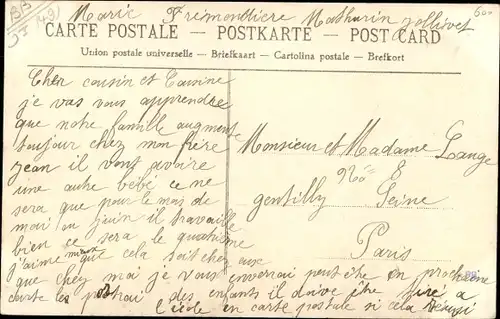 Marie Fremondiere Mathurin Jollivet
CARTE POSTALE – POSTKARTE – POST CARD
Union postale universelle – Briefkaart – Cartolina postale – Brefkort
Cher cousin et Cousine
je vas vous apprendre
que notre famille augmente
toujour chez mon frère
jean il vont avoire
une autre bébé ce ne
sera que pour le mois de
mai ou juin il travaille
bien ce sera le quatrième
j'aime mieux que cela soit chez eux
que chez moi je vous enverrai peut être en prochaine
carte les portrai des enfants il doive être tire a
l'école en carte postale si cela réussi
Monsieur et Madame Lange
No 8
gentilly Seine
Paris